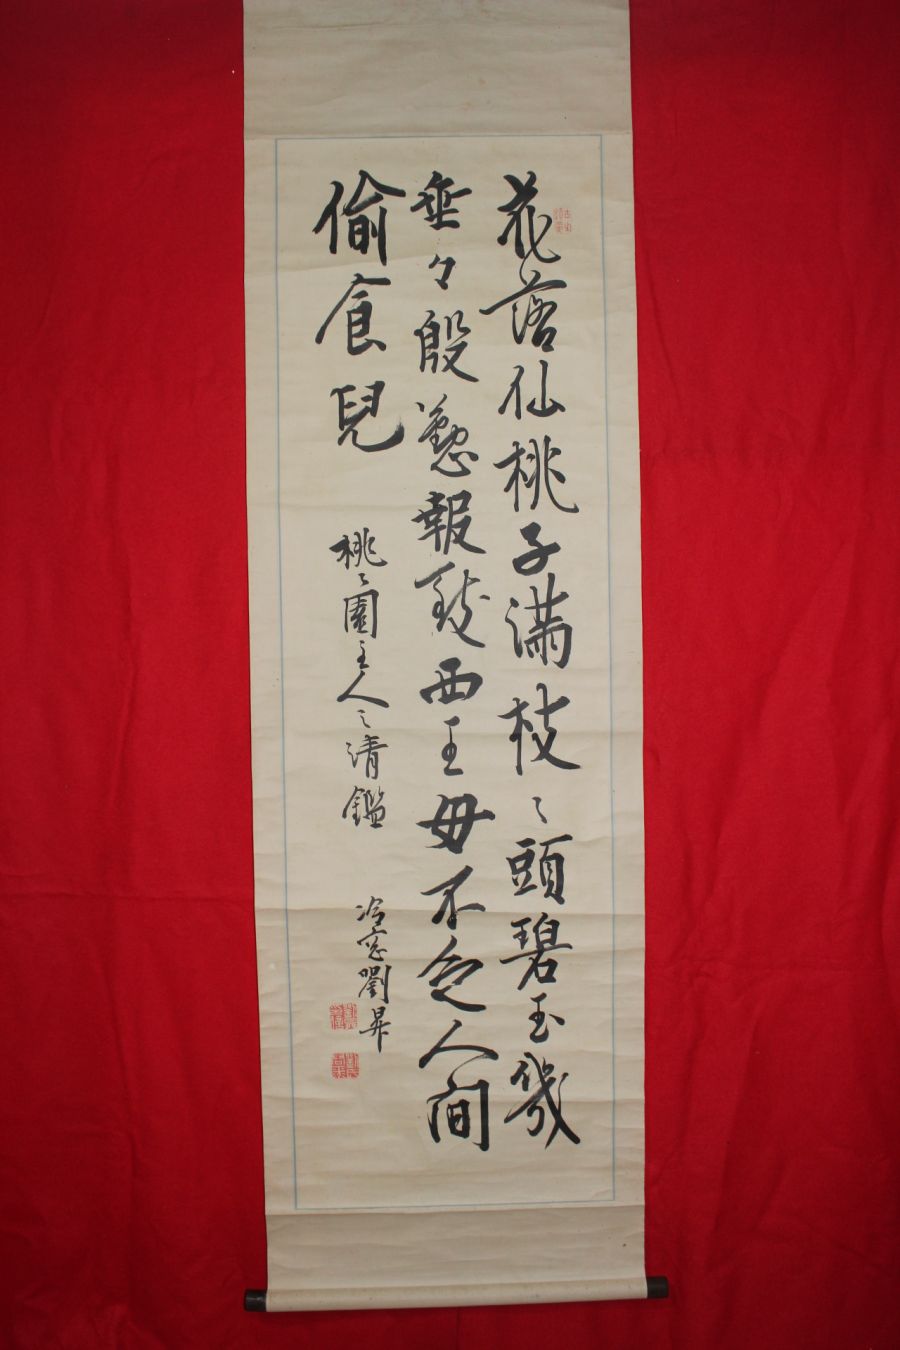 花落仙桃子滿枝〻頭碧玉幾
垂々殷懃報致西王母不乏人間
偷食兒
桃〻園主人之清鑑
冷窓劉昇